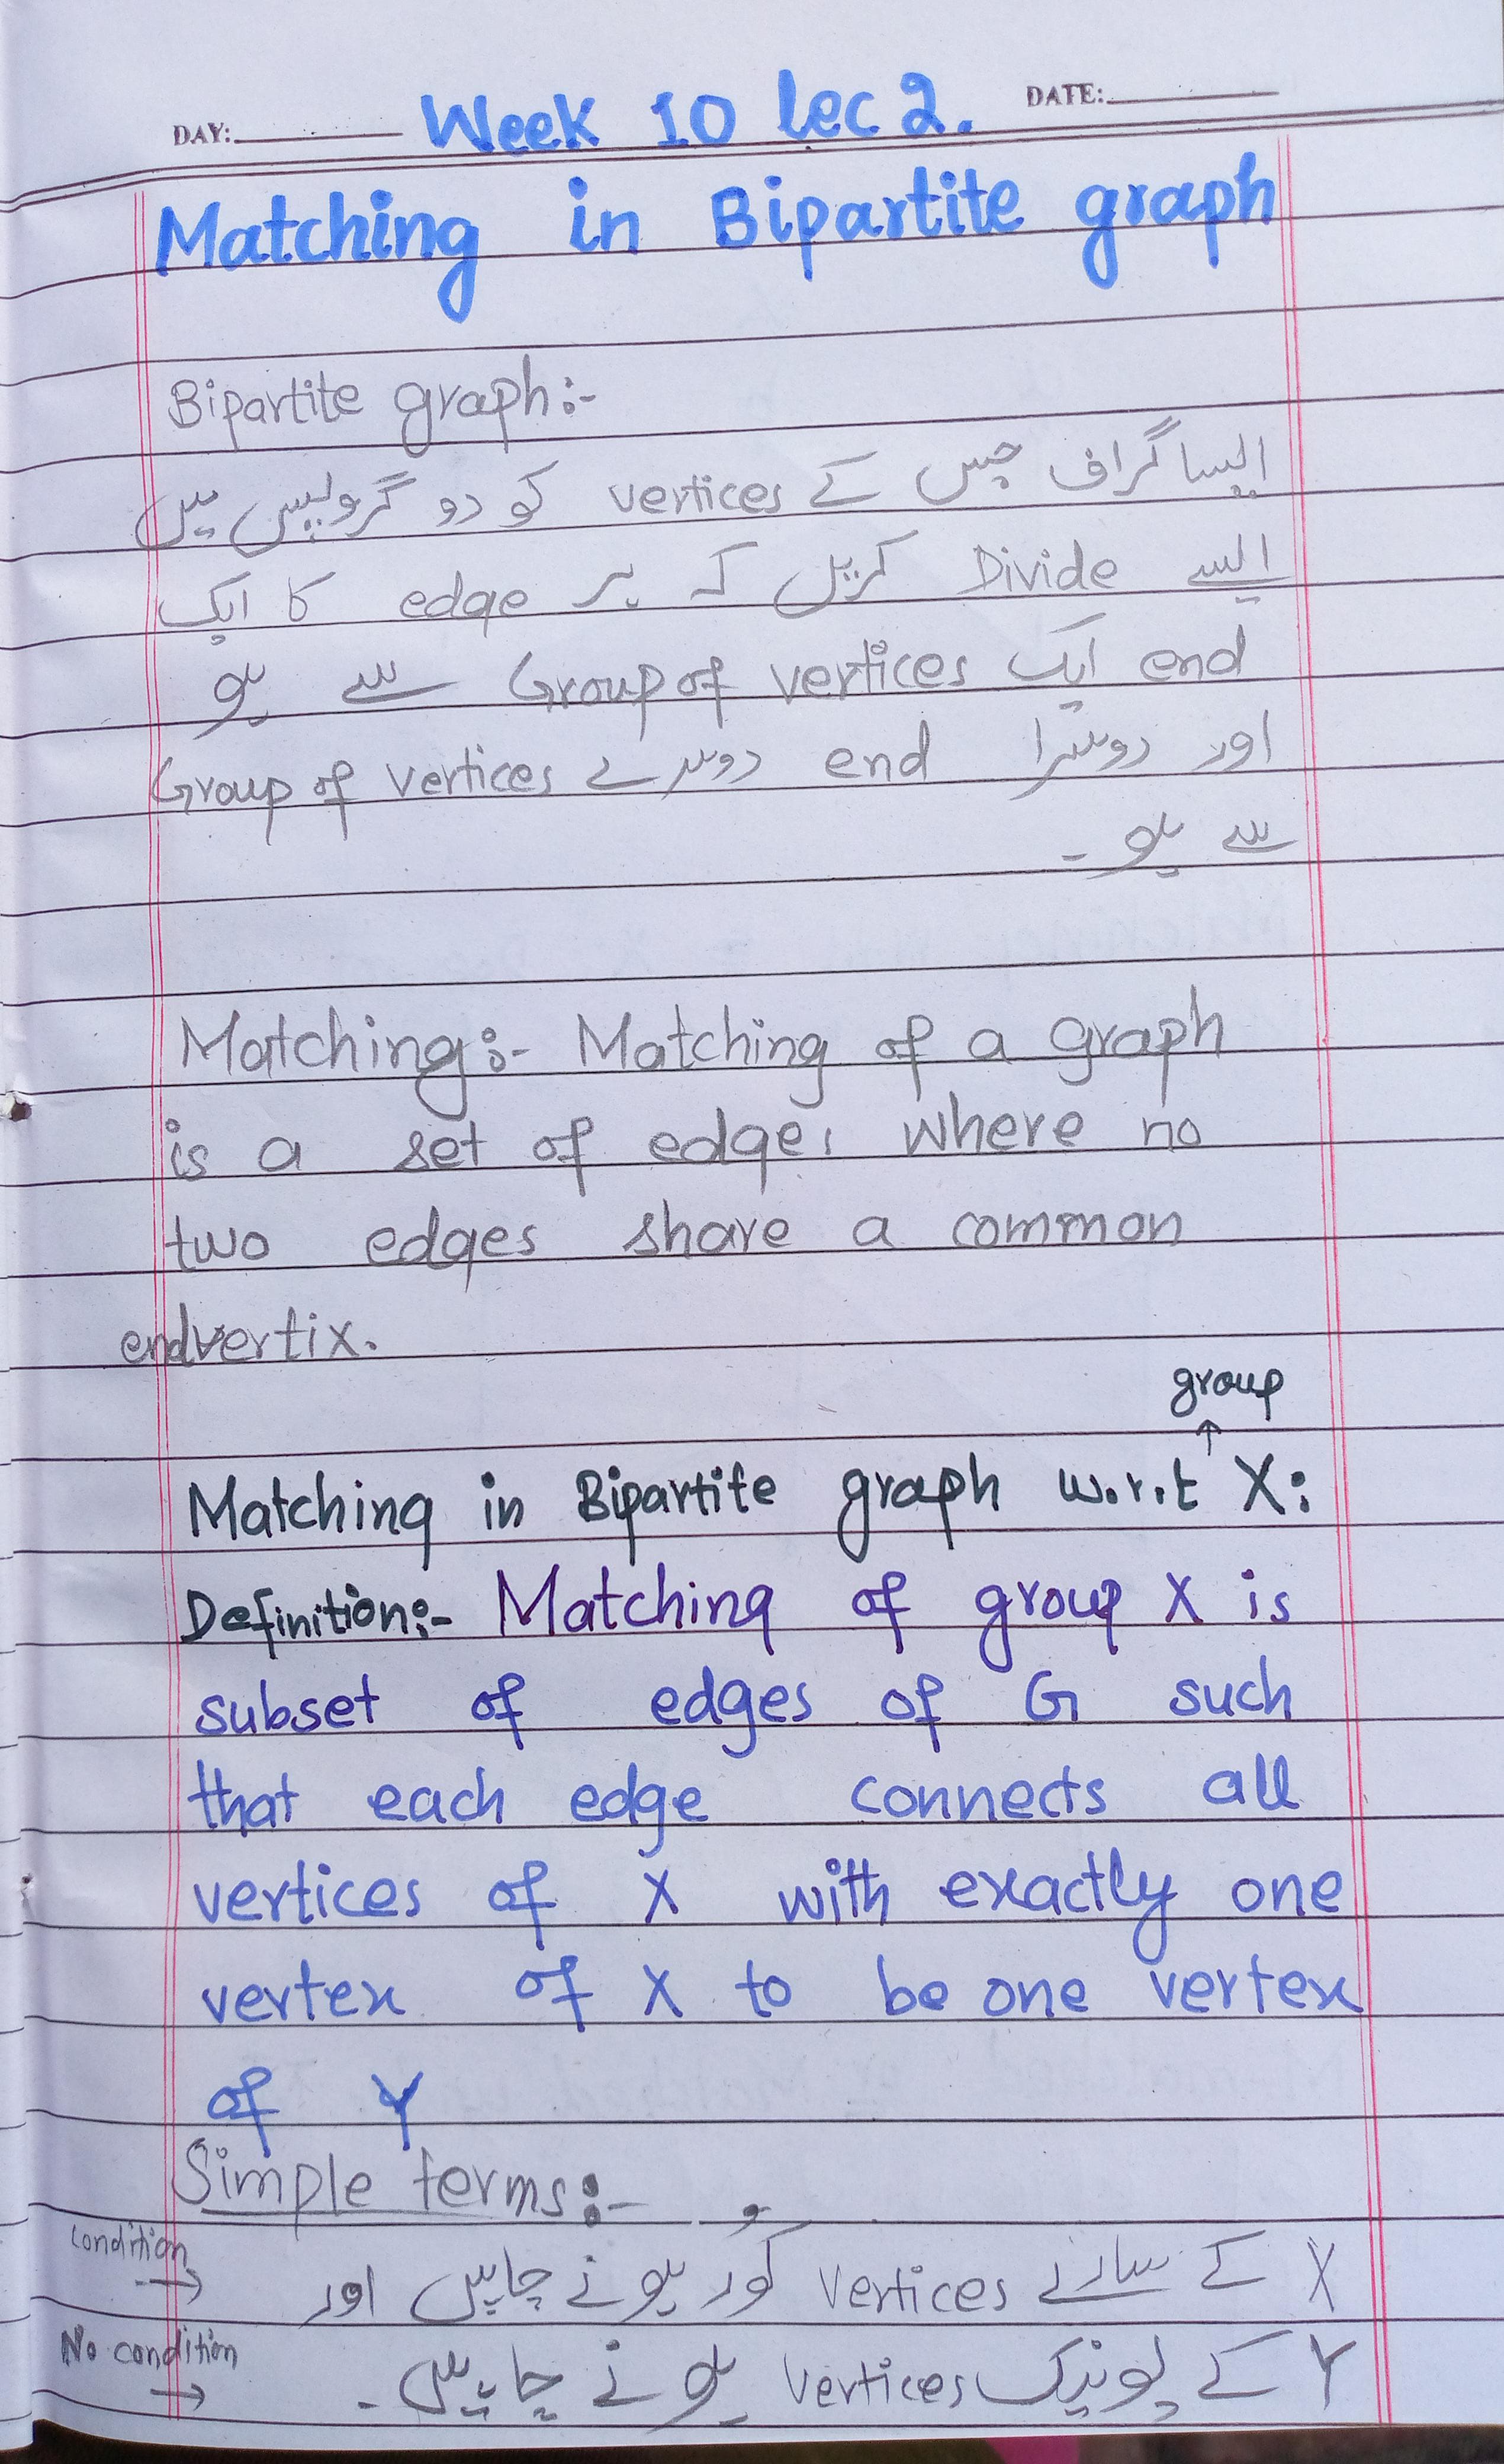 DAY: Week 10 lec 2. DATE:
Matching in Bipartite graph
Bipartite graph:-
ایسا گراف جس کے vertices کو دو گروپس میں
ایسے Divide کریں کہ ہر edge کا ایک
end ایک Group of vertices سے ہو
اور دوسرا end دوسرے Group of vertices
سے ہو ۔
Matching:- Matching of a graph
is a set of edges where no
two edges share a common
endvertix.
group
↑
Matching in Bipartite graph w.r.t X:
Definition:- Matching of group X is
subset of edges of G such
that each edge connects all
vertices of X with exactly one
vertex of X to be one vertex
of Y
Simple terms:-
condition → X کے سارے vertices کور ہونے چاہیں اور
No condition → Y کے یونیک vertices ہونے چاہیں۔